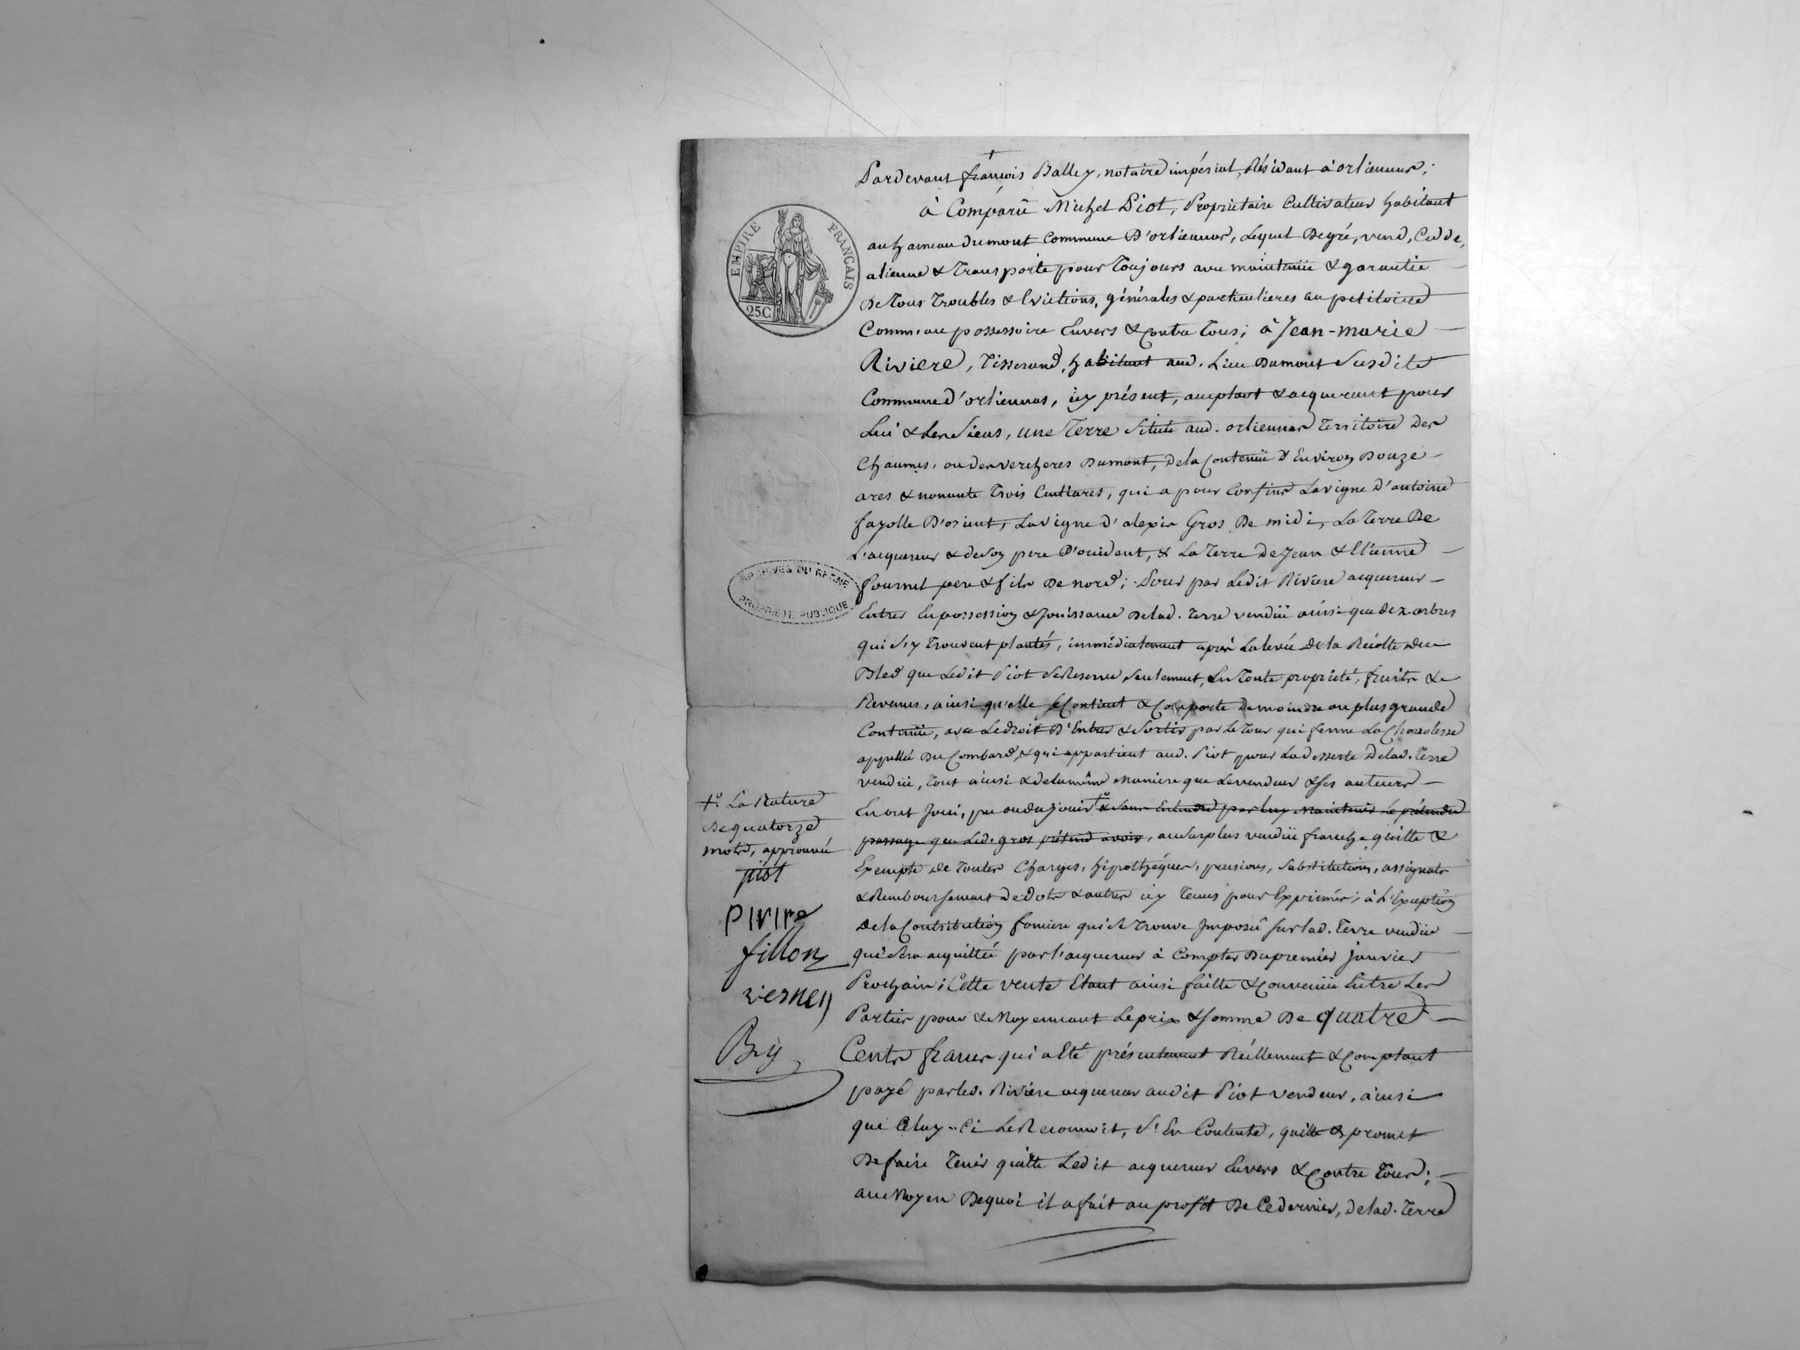 Pardevant françois Balley, notaire impérial, Résidant à orliennas;
à Comparu Michel Piot, Propriétaire Cultivateur habitant
au hameau dumont Commune D'orliennas, Lequel Degré, vend, Cedde,
alienne & Transporte pour Toujours avec maintenüe & garantie
De Tous Troubles & Evictions, générales & particulieres au petitoire
Comme au possessoire Envers & Contre Tous; à Jean-marie
Riviere, Tisserand, habitant aud. Lieu Dumont Susdite
Commune d'orliennas, icy présent, acceptant & acquerant pour
Lui & Les Siens, une Terre Située aud. orliennas Territoire Des
Chaumes, ou des vercheres Dumont, de la Contenüe D'Environ Douze
ares & nonante Trois Centiares, qui a pour Confins La vigne D'antoine
fayolle D'orient, La vigne d'alexis Gros De midi, La Terre De
L'acquereur & de Son pere D'occident, & La Terre de Jean & Etienne
fournel pere & fils De nord; Pour par Ledit Riviere acquereur
Entrer En possession & Jouissance De lad. Terre vendüe ainsi que dez arbres
qui S'y Trouvent plantés, immédiatement après La levée de la Récolte du
Bled que Ledit Piot Se Reserve Seulement, En Toute propriété, fruits &
Revenus, ainsi qu'elle Se Contient & Comporte de moindre ou plus grande
Contenüe, avec Le droit D'Entrer & Sortir par Le Tour qui ferme La
appellée Du Combard & qui appartient aud. Piot pour La desserte De lad. Terre
vendüe, Tout ainsi & de la même maniere que Le vendeur & Ses auteurs
En ont Joui, pu ou du jouir & Sans Entendre par luy maintenir Le prétendu
passage que Led. gros prétend avoir, au Surplus vendüe franche, quitte &
Exempte de Toutes Charges, hipothéques, pensions, Substitutions, assignats
& Remboursement de dots & autres icy Tenus pour Exprimés; à L'Exception
de la Contribution fonciere qui Se Trouve Imposée Sur lad. Terre vendüe
qui Sera acquittée par l'acquereur à Compter Du premier janvier
Prochain; Cette vente Etant ainsi faitte & Convenüe Entre Les
Parties pour & Moyennant Le prix & Somme De quatre
Cents francs qui a Eté présentement Réellement & Comptant
payé par led. Riviere acquereur audit Piot vendeur, ainsi
que Celuy-Ci Le Reconnoit, S'En Contente, quitte & promet
De faire Tenir quitte Ledit acquereur Envers & Contre Tous;
au Moyen De quoi il a fait au profit De Ce dernier, de lad. Terre
La Rature
De quatorze
mots, approuvée
piot
fillon
EMPIRE FRANÇAIS
25C
ARCHIVES DU RHÔNE
PROPRIÉTÉ PUBLIQUE